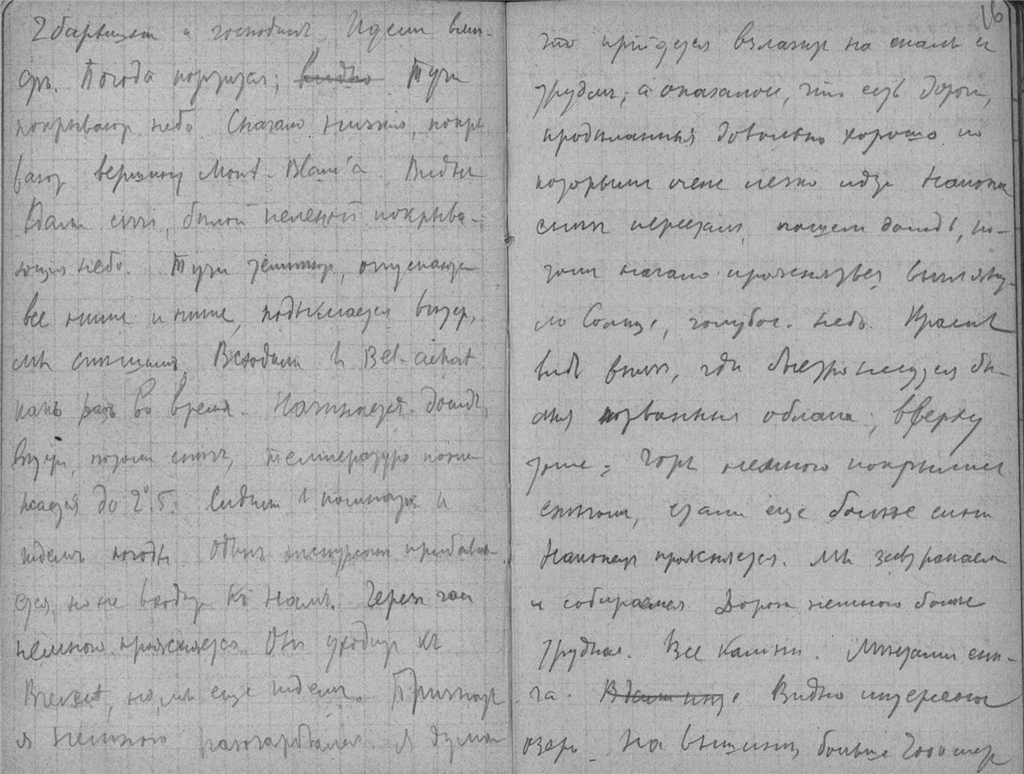 2 барышни и господинъ. Идемъ вмѣ-
стѣ. Погода портится; видно Тучи
покрываютъ небо. Сначала низко, покры
ваютъ вершину Mont-Blanc'а. Видны
вдали снѣгъ, бѣлой пеленой покрыва-
ющія небо. Тучи темнѣютъ, опускаются
все ниже и ниже, поднимается вѣтеръ,
мы спѣшимъ. Входимъ в Bel-achat
какъ разъ во время. Начинается дождь,
вѣтеръ, потомъ снѣгъ, температура пони
жается до 2°.5. Сидимъ в комнатѣ и
ждемъ погоды. Одинъ экскурсантъ прибавля-
ется, но не входитъ къ намъ. Через час
немного проясняется. Они уходятъ къ
Brevent, но мы еще ждемъ. Признаться
я немного разочаровался. Я думалъ
16
что придется взлазить на скалы с
трудомъ; а оказалось, что есть дорога,
продѣланныя довольно хорошо по
которымъ очень легко идти. Наконецъ
снѣгъ пересталъ, пошелъ дождь, по-
томъ начало проясняться, выгляну-
ло Солнце, голубое небо. Красивъ
видъ внизъ, гдѣ быстро несутся бѣ-
лыя разорванныя облака; вверху
тоже; Горы немного покрылись
снѣгомъ, стали еще больше
Наконецъ проясняется. Мы завтракаемъ
и собираемся. Дорога немного болѣе
трудная. Все камни. Мѣстами снѣ-
га. Видно интересное
озеро. На вышинѣ больше 2000 метр